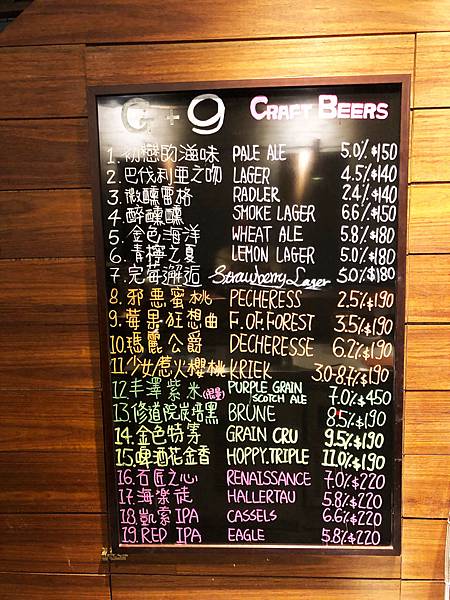 G+9 CRAFT BEERS
1.初戀的滋味 PALE ALE 5.0% $150
2.巴伐利亞之吻 LAGER 4.5% $140
3.微醺雷格 RADLER 2.4% $140
4.醉醺醺 SMOKE LAGER 6.6% $150
5.金色海洋 WHEAT ALE 5.8% $180
6.青檸之夏 LEMON LAGER 5.0% $180
7.完莓邂逅 Strawberry Lager 5.0% $180
8.邪惡蜜桃 PECHERESS 2.5% $190
9.莓果狂想曲 F.OF.FOREST 3.5% $190
10.瑪麗公爵 DECHERESSE 6.2% $190
11.少女惹火櫻桃 KRIEK 3.0-8.7% $190
12.丰澤紫米(限量) PURPLE GRAIN SCOTCH ALE 7.0% $450
13.修道院炭燒黑 BRUNE 8.5% $190
14.金色特莠 GRAIN CRU 9.5% $190
15.啤酒花金香 HOPPY.TRIPLE 11.0% $190
16.石匠之心 RENAISSANCE 7.0% $220
17.海樂徒 HALLERTAU 5.8% $220
18.凱索IPA CASSELS 6.6% $220
19.RED IPA EAGLE 5.8% $220